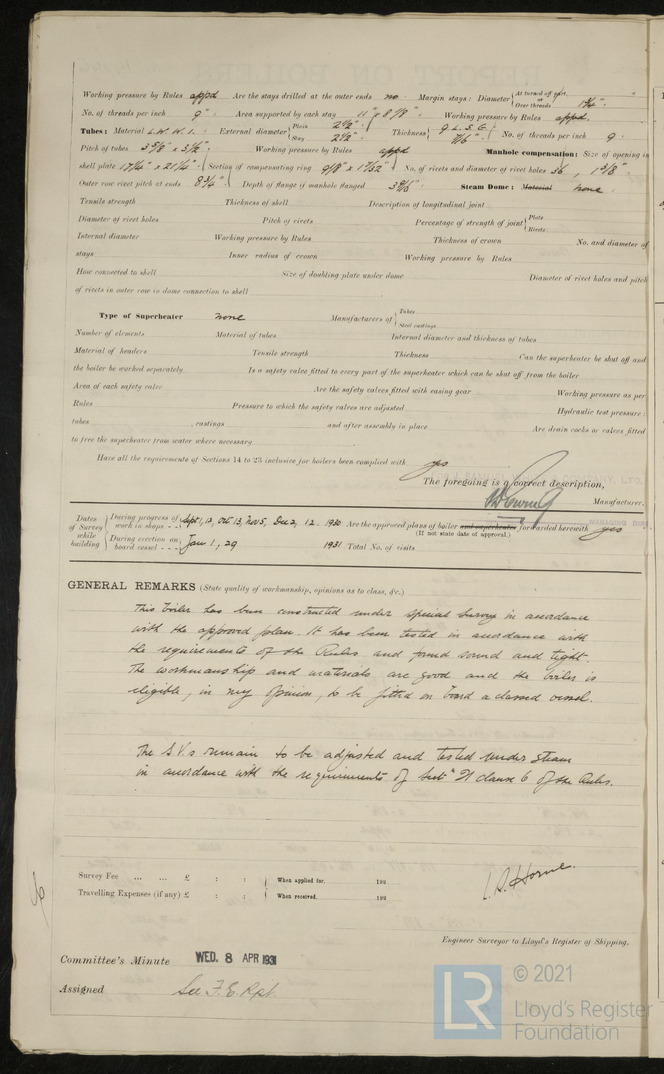 Working pressure by Rules appd Are the stays drilled at the outer ends no Margin stays: Diameter { At turned off part, or Over threads 1¾"
No. of threads per inch 9" Area supported by each stay 11" x 8 7/8" Working pressure by Rules appd.
Tubes: Material L.W.W.I. External diameter { Plain 2½" Stay 2½" Thickness { 9 L.S.G. 7/16" No. of threads per inch 9
Pitch of tubes 3 5/8" x 3 5/16" Working pressure by Rules appd Manhole compensation: Size of opening in
shell plate 17¼" x 21¼" Section of compensating ring No. of rivets and diameter of rivet holes 36, 1 3/8"
Outer row rivet pitch at ends 8¾" Depth of flange if manhole flanged Steam Dome: Material none
Tensile strength Thickness of shell Description of longitudinal joint
Diameter of rivet holes Pitch of rivets Percentage of strength of joint { Plate Rivets
Internal diameter Working pressure by Rules Thickness of crown No. and diameter of
stays Inner radius of crown Working pressure by Rules
How connected to shell Size of doubling plate under dome Diameter of rivet holes and pitch
of rivets in outer row in dome connection to shell
Type of Superheater none Manufacturers of { Tubes Steel castings
Number of elements Material of tubes Internal diameter and thickness of tubes
Material of headers Tensile strength Thickness Can the superheater be shut off and
the boiler be worked separately Is a safety valve fitted to every part of the superheater which can be shut off from the boiler
Area of each safety valve Are the safety valves fitted with easing gear Working pressure as per
Rules Pressure to which the safety valves are adjusted Hydraulic test pressure:
tubes , castings and after assembly in place Are drain cocks or valves fitted
to free the superheater from water where necessary
Have all the requirements of Sections 14 to 23 inclusive for boilers been complied with yes
The foregoing is a correct description,
Manufacturer.
Dates of Survey while building { During progress of work in shops - - Sept 1, 12, Oct 13, Nov 5, Dec 2, 12. 1930 Are the approved plans of boiler and superheater forwarded herewith yes
(If not state date of approval.)
During erection on board vessel - - - Jan 1, 29 1931 Total No. of visits
GENERAL REMARKS (State quality of workmanship, opinions as to class, &c.)
This boiler has been constructed under special survey in accordance
with the approved plan. It has been tested in accordance with
the requirements of the Rules and found sound and tight.
The workmanship and materials are good and the boiler is
eligible, in my opinion, to be fitted on board a classed vessel.
The S.V.s remain to be adjusted and tested under steam
in accordance with the requirements of Sectn 21 clause 6 of the Rules.
Survey Fee ... ... £ : : When applied for, 192
Travelling Expenses (if any) £ : : When received, 192
Engineer Surveyor to Lloyd's Register of Shipping.
Committee's Minute WED. 8 APR 1931
Assigned See F.E. Rpt.
© 2021
LR
Lloyd's Register
Foundation